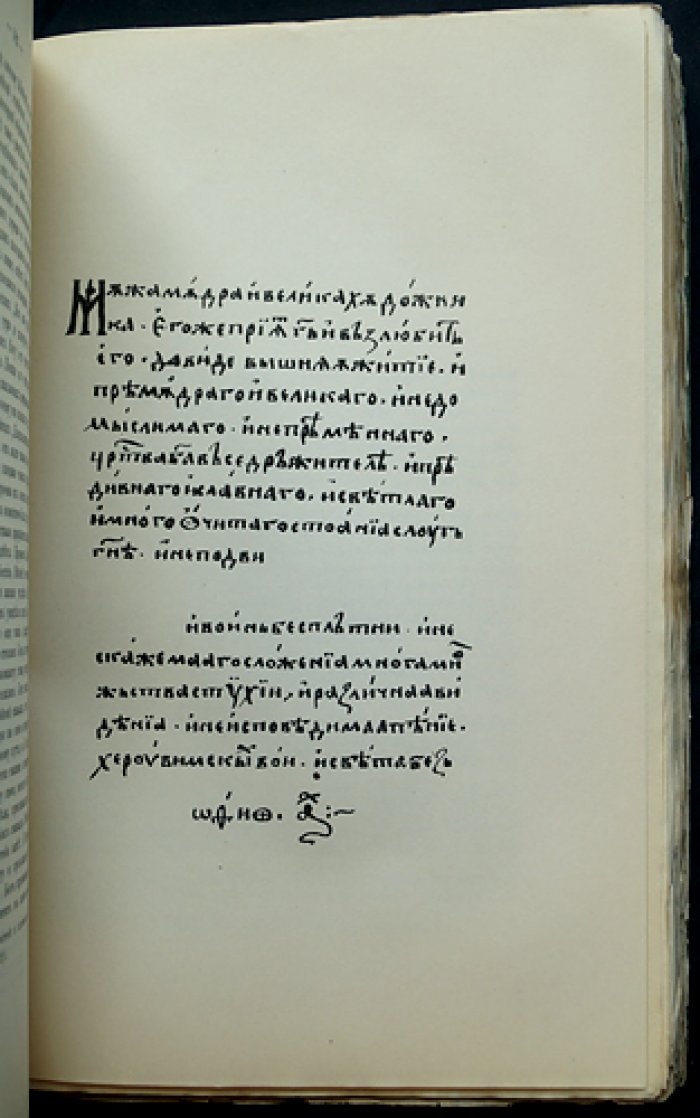 Мѫжа мѫ́дра и҆ вели́ка хѫдо́жни
ка · е҆гоже прїѧ҃т г҃ь и҆ възлюби́ть
е҆го · да ви́де вышнѧѧ жи́тїе · и҆
прѣмѫ́драго и҆ вели́каго · и҆ недо
мы́слимаго · и҆ непрѣмѣ́ннаго ·
цр҃тва б҃а въседръжителѣ · и҆ прѣ
ди́внаго и҆ сла́внаго · и҆ свѣ́тлаго
и҆ много ѻ҆чи́таго стоа́нїа слоугь
г҃нѣ · и҆ неподви
и҆ вои́нь бесплътни · и҆ не
ска́жемааго сложе́нїа мно́га мнѡ
жьства стѵхїи, и҆ разли́чнаа ви
дѣ́нїа · и҆ неи҆сповѣ́димаа пѣ́нїе ·
хероувимскы҃ вои · и҆ свѣ́та без